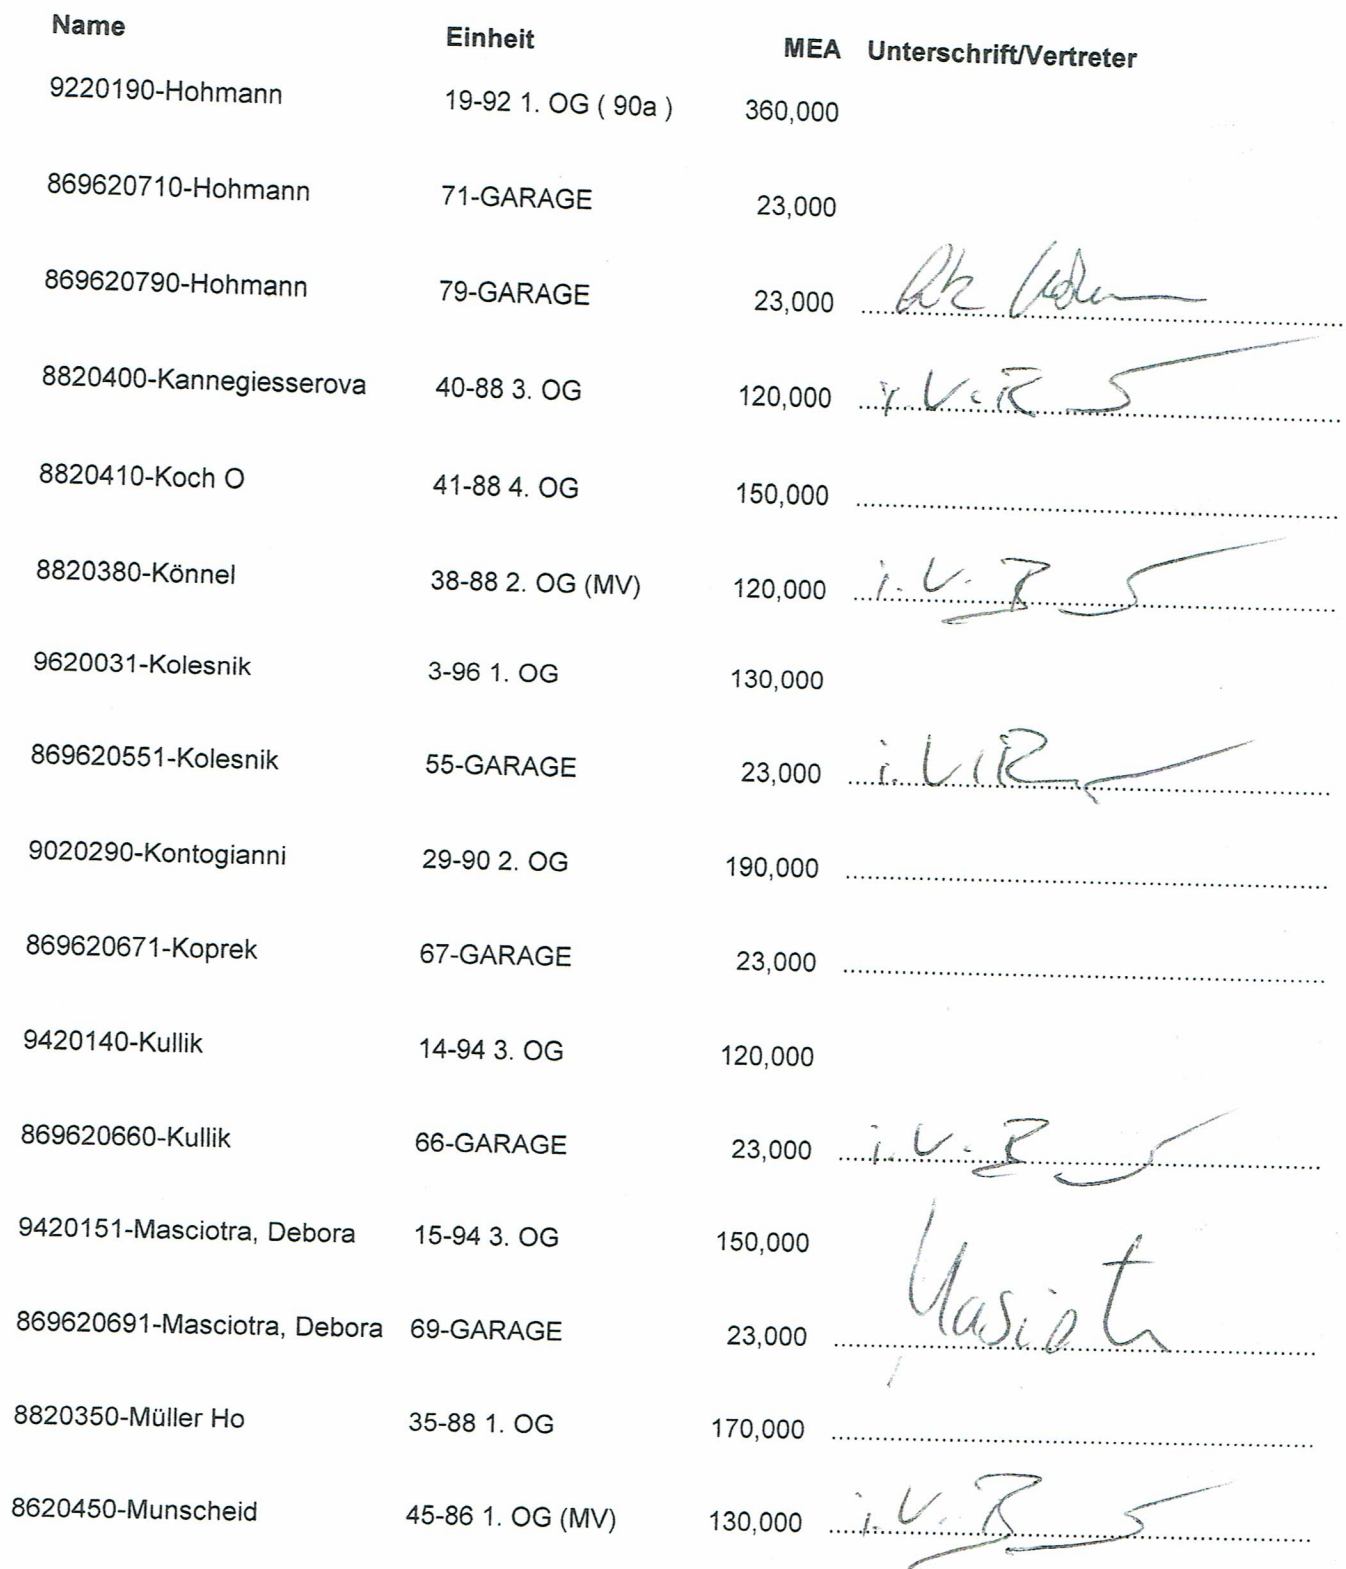 Name Einheit MEA Unterschrift/Vertreter
9220190-Hohmann 19-92 1. OG ( 90a ) 360,000
869620710-Hohmann 71-GARAGE 23,000
869620790-Hohmann 79-GARAGE 23,000
8820400-Kannegiesserova 40-88 3. OG 120,000 i.V.
8820410-Koch O 41-88 4. OG 150,000
8820380-Könnel 38-88 2. OG (MV) 120,000 i.V.
9620031-Kolesnik 3-96 1. OG 130,000
869620551-Kolesnik 55-GARAGE 23,000 i.V.
9020290-Kontogianni 29-90 2. OG 190,000
869620671-Koprek 67-GARAGE 23,000
9420140-Kullik 14-94 3. OG 120,000
869620660-Kullik 66-GARAGE 23,000 i.V.
9420151-Masciotra, Debora 15-94 3. OG 150,000
869620691-Masciotra, Debora 69-GARAGE 23,000
8820350-Müller Ho 35-88 1. OG 170,000
8620450-Munscheid 45-86 1. OG (MV) 130,000 i.V.